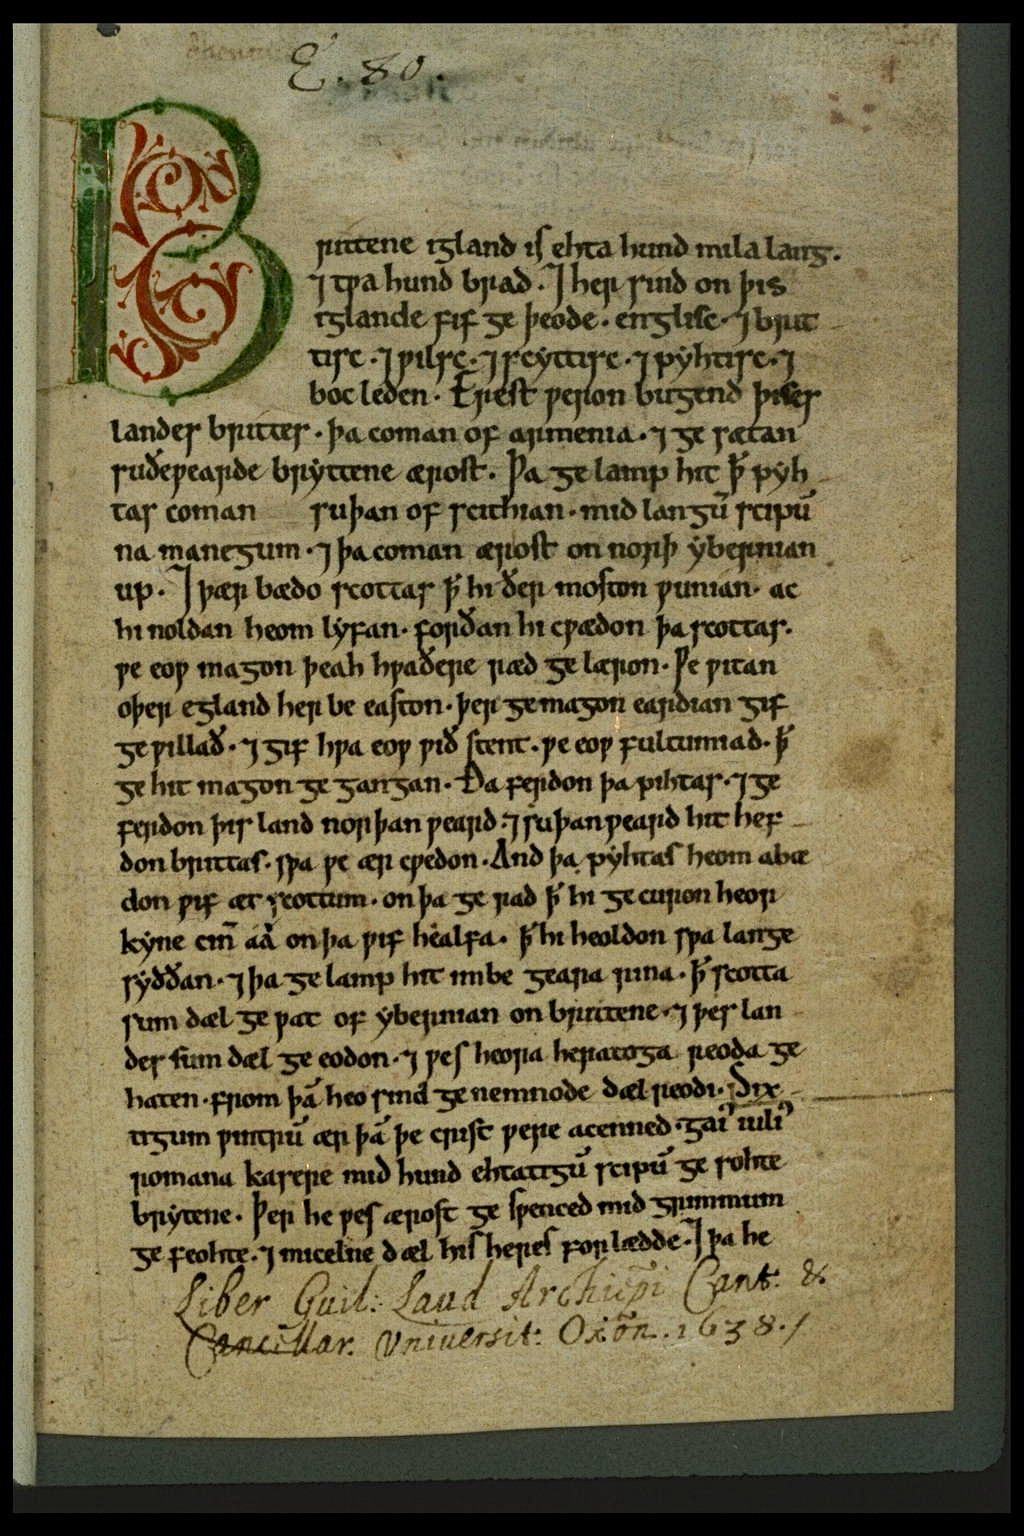 E. 80.
Brittene igland is ehta hund mila lang.
⁊ tƿa hund brad. ⁊ her sind on þis
iglande fif ge þeode. englisc. ⁊ brit
tisc. ⁊ ƿilsc. ⁊ scyttisc. ⁊ pyhtisc. ⁊
boc leden. Erest ƿeron bugend þises
landes brittes. þa coman of armenia. ⁊ ge sætan
suðeƿearde bryttene ærost. Þa ge lamp hit ꝥ pyh
tas coman suþan of scithian. mid langū scipū
na manegum. ⁊ þa coman ærost on norþ ybernian
up. ⁊ þær bædo scottas ꝥ hi ðer moston ƿunian. ac
hi noldan heom lyfan. forðan hi cƿædon þa scottas.
ƿe eoƿ magon þeah hƿaðere ræd ge læron. Ƿe ƿitan
oþer egland her be easton. þer ge magon eardian gif
ge ƿillað. ⁊ gif hƿa eoƿ ƿið stent. ƿe eoƿ fultumiad. ꝥ
ge hit magon ge gangan. Ða ferdon þa pihtas. ⁊ ge
ferdon þis land norþan ƿeard. ⁊ suþan ƿeard hit hef
don brittas. sƿa ƿe ær cƿedon. And þa pyhtas heom abæ
don ƿif æt scottum. on þa ge rad ꝥ hi ge curon heor
kyne cin̄ aa on þa ƿif healfa. ꝥ hi heoldon sƿa lange
syððan. ⁊ þa ge lamp hit imbe geara rina. ꝥ scotta
sum dæl ge ƿat of ybernian on brittene. ⁊ þes lan
des sum dæl ge eodon. ⁊ ƿes heora heratoga reoda ge
haten. from þā heo sind ge nemnode dæl reodi. Six
tigum ƿintrū ær þā þe crist ƿere acenned. gai᾽ iuli᾽
romana kasere mid hund ehtatigū scipū ge sohte
brytene. Þer he ƿes ærost ge sƿenced mid grimmum
ge feohte. ⁊ micelne dæl his heres forlædde. ⁊ þa he
Liber Guil: Laud Archiep̄i Cant: &
Cancellar. Vniversit: Oxōn. 1638./